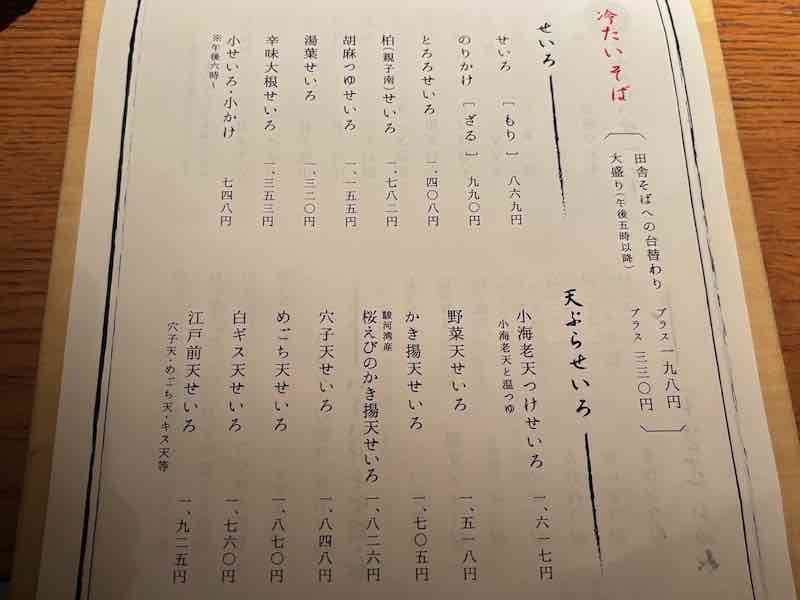 冷たいそば
田舎そばへの台替わり プラス 一九八円
大盛り(午後五時以降) プラス 三三〇円
せいろ
せいろ [もり] 八六九円
のりかけ [ざる] 九九〇円
とろろせいろ 一、四〇八円
柏(親子南)せいろ 一、七八二円
胡麻つゆせいろ 一、一五五円
湯葉せいろ 一、三二〇円
辛味大根せいろ 一、三五三円
小せいろ・小かけ 七四八円
※午後六時〜
天ぷらせいろ
小海老天つけせいろ 一、六一七円
小海老天と温つゆ
野菜天せいろ 一、五一八円
かき揚天せいろ 一、七〇五円
駿河湾産
桜えびのかき揚天せいろ 一、八二六円
穴子天せいろ 一、八四八円
めごち天せいろ 一、八七〇円
白ギス天せいろ 一、七六〇円
江戸前天せいろ 一、九二五円
穴子天・めごち天・キス天等